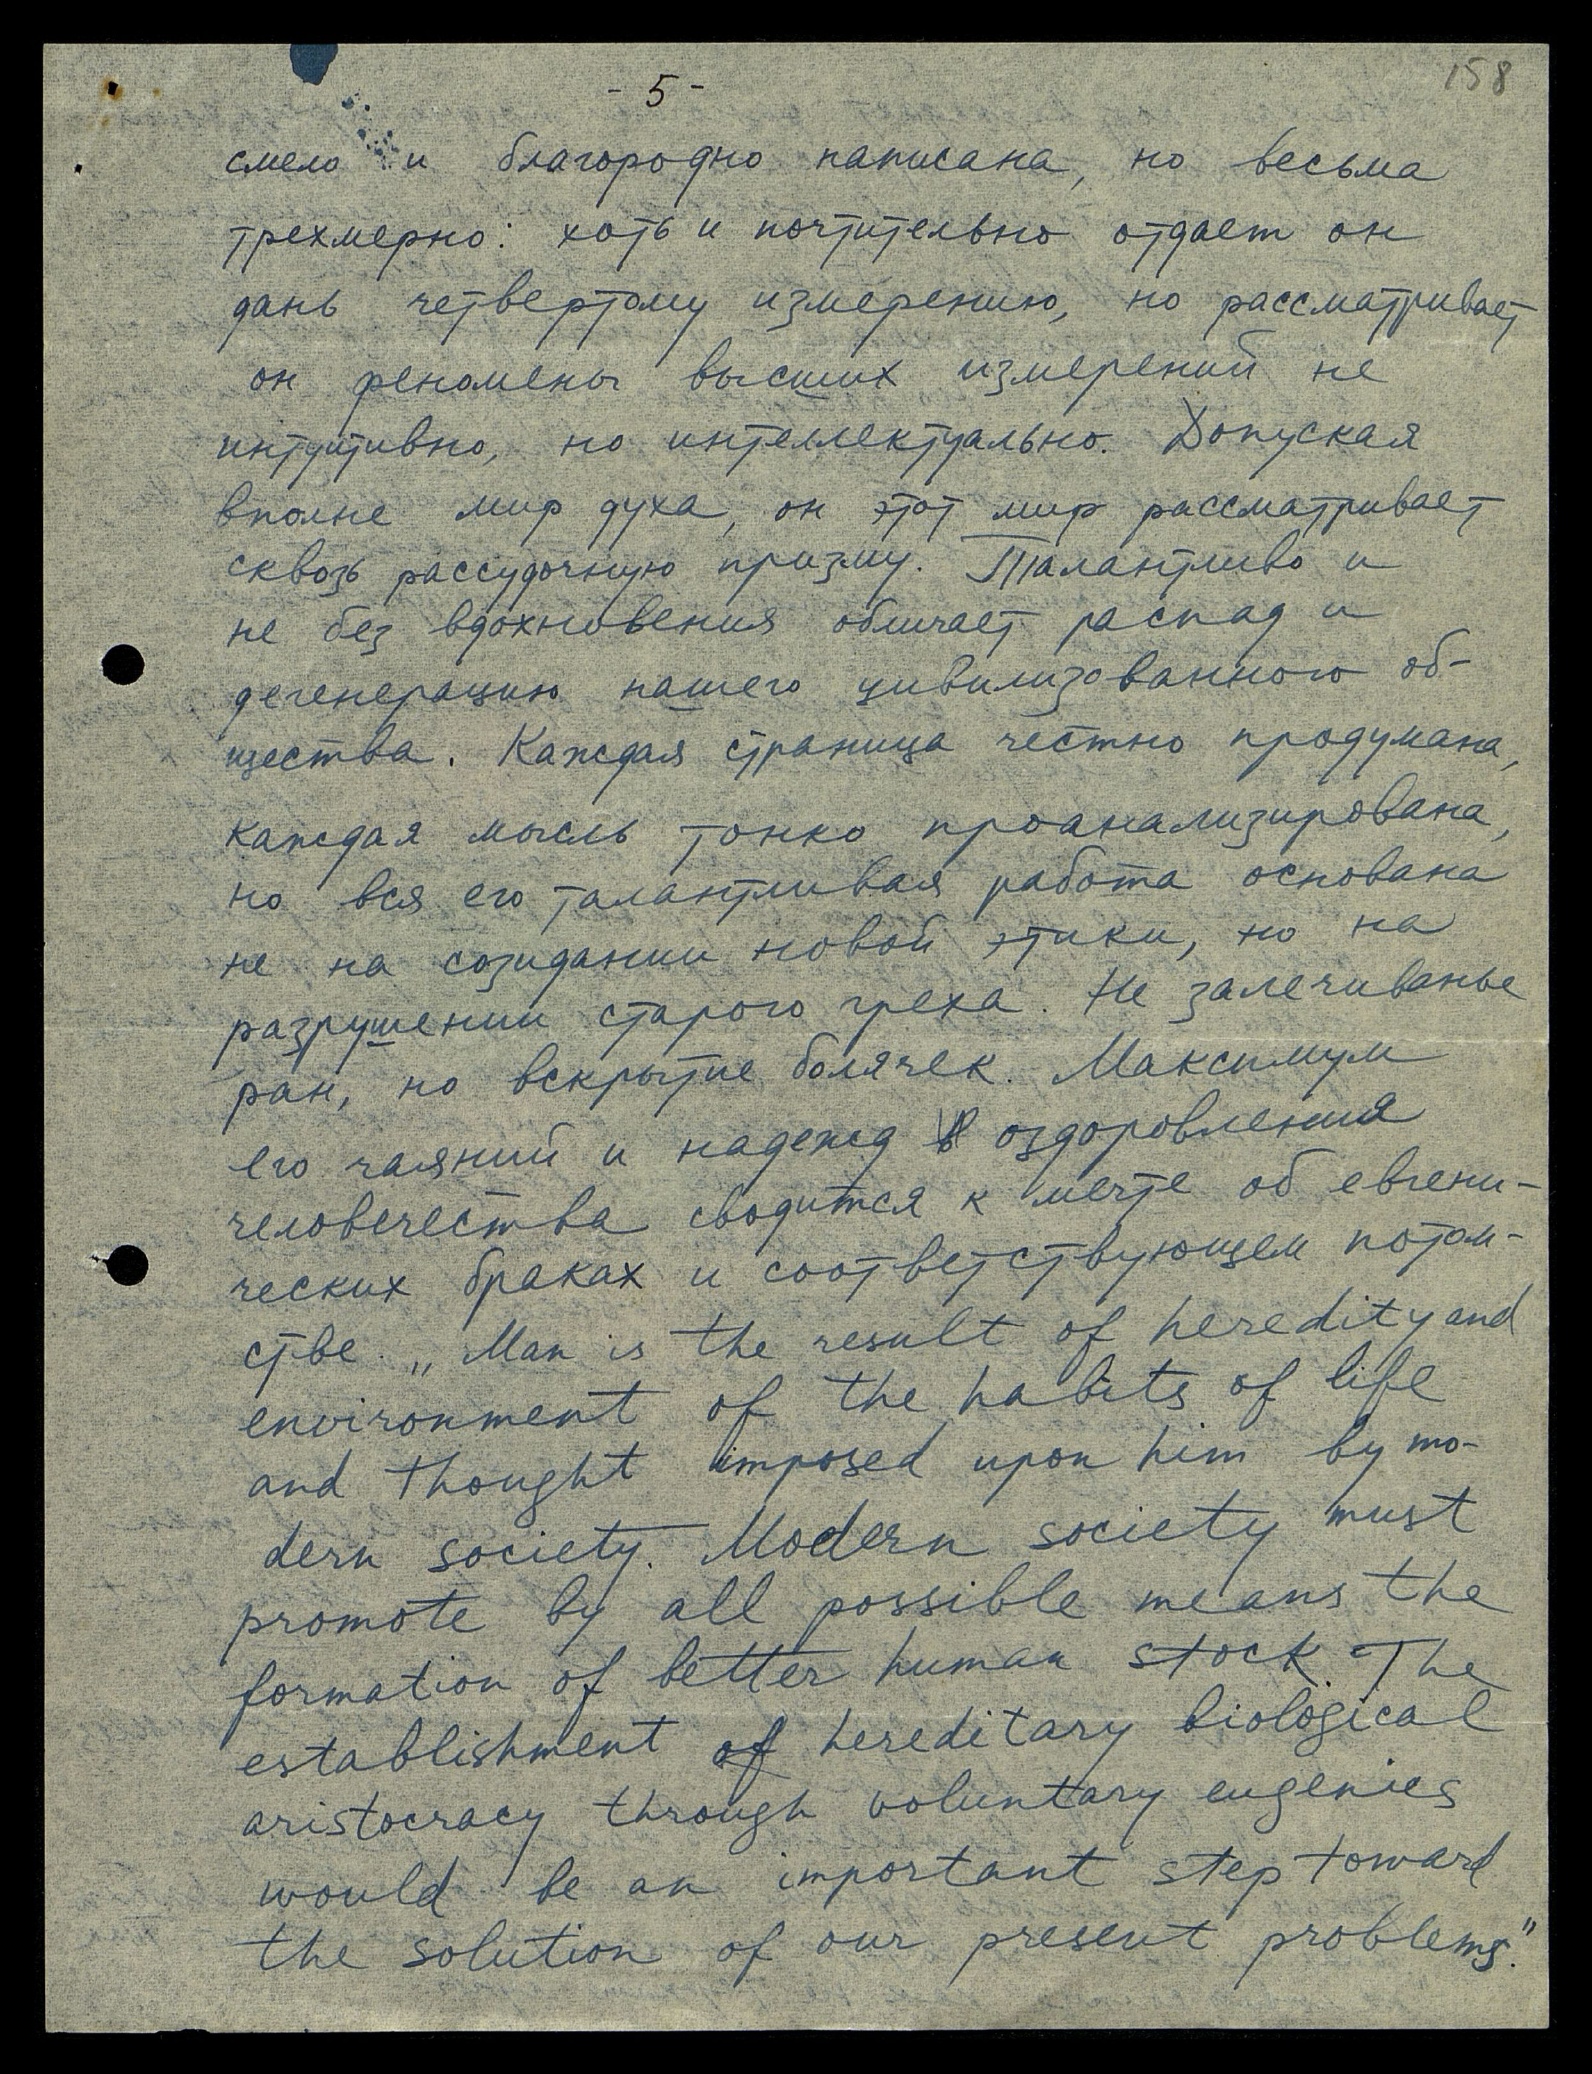 - 5 -
158
смело и благородно написана, но весьма
трехмерно: хоть и почтительно отдает он
дань четвертому измерению, но рассматривает
он феномены высших измерений не
интуитивно, но интеллектуально. Допуская
вполне мир духа, он этот мир рассматривает
сквозь рассудочную призму. Талантливо и
не без вдохновения обличает распад и
дегенерацию нашего цивилизованного об-
щества. Каждая страница честно продумана,
каждая мысль тонко проанализирована,
но вся его талантливая работа основана
не на созидании новой этики, но на
разрушении старого греха. Не залечиванье
ран, но вскрытие болячек. Максимум
его чаяний и надежд в оздоровления
человечества сводится к мечте об евгени-
ческих браках и соответствующем потом-
стве. „Man is the result of heredity and
environment of the habits of life
and thought imposed upon him by mo-
dern society. Modern society must
promote by all possible means the
formation of better human stock. The
establishment of hereditary biological
aristocracy through voluntary eugenics
would be an important step toward
the solution of our present problems."